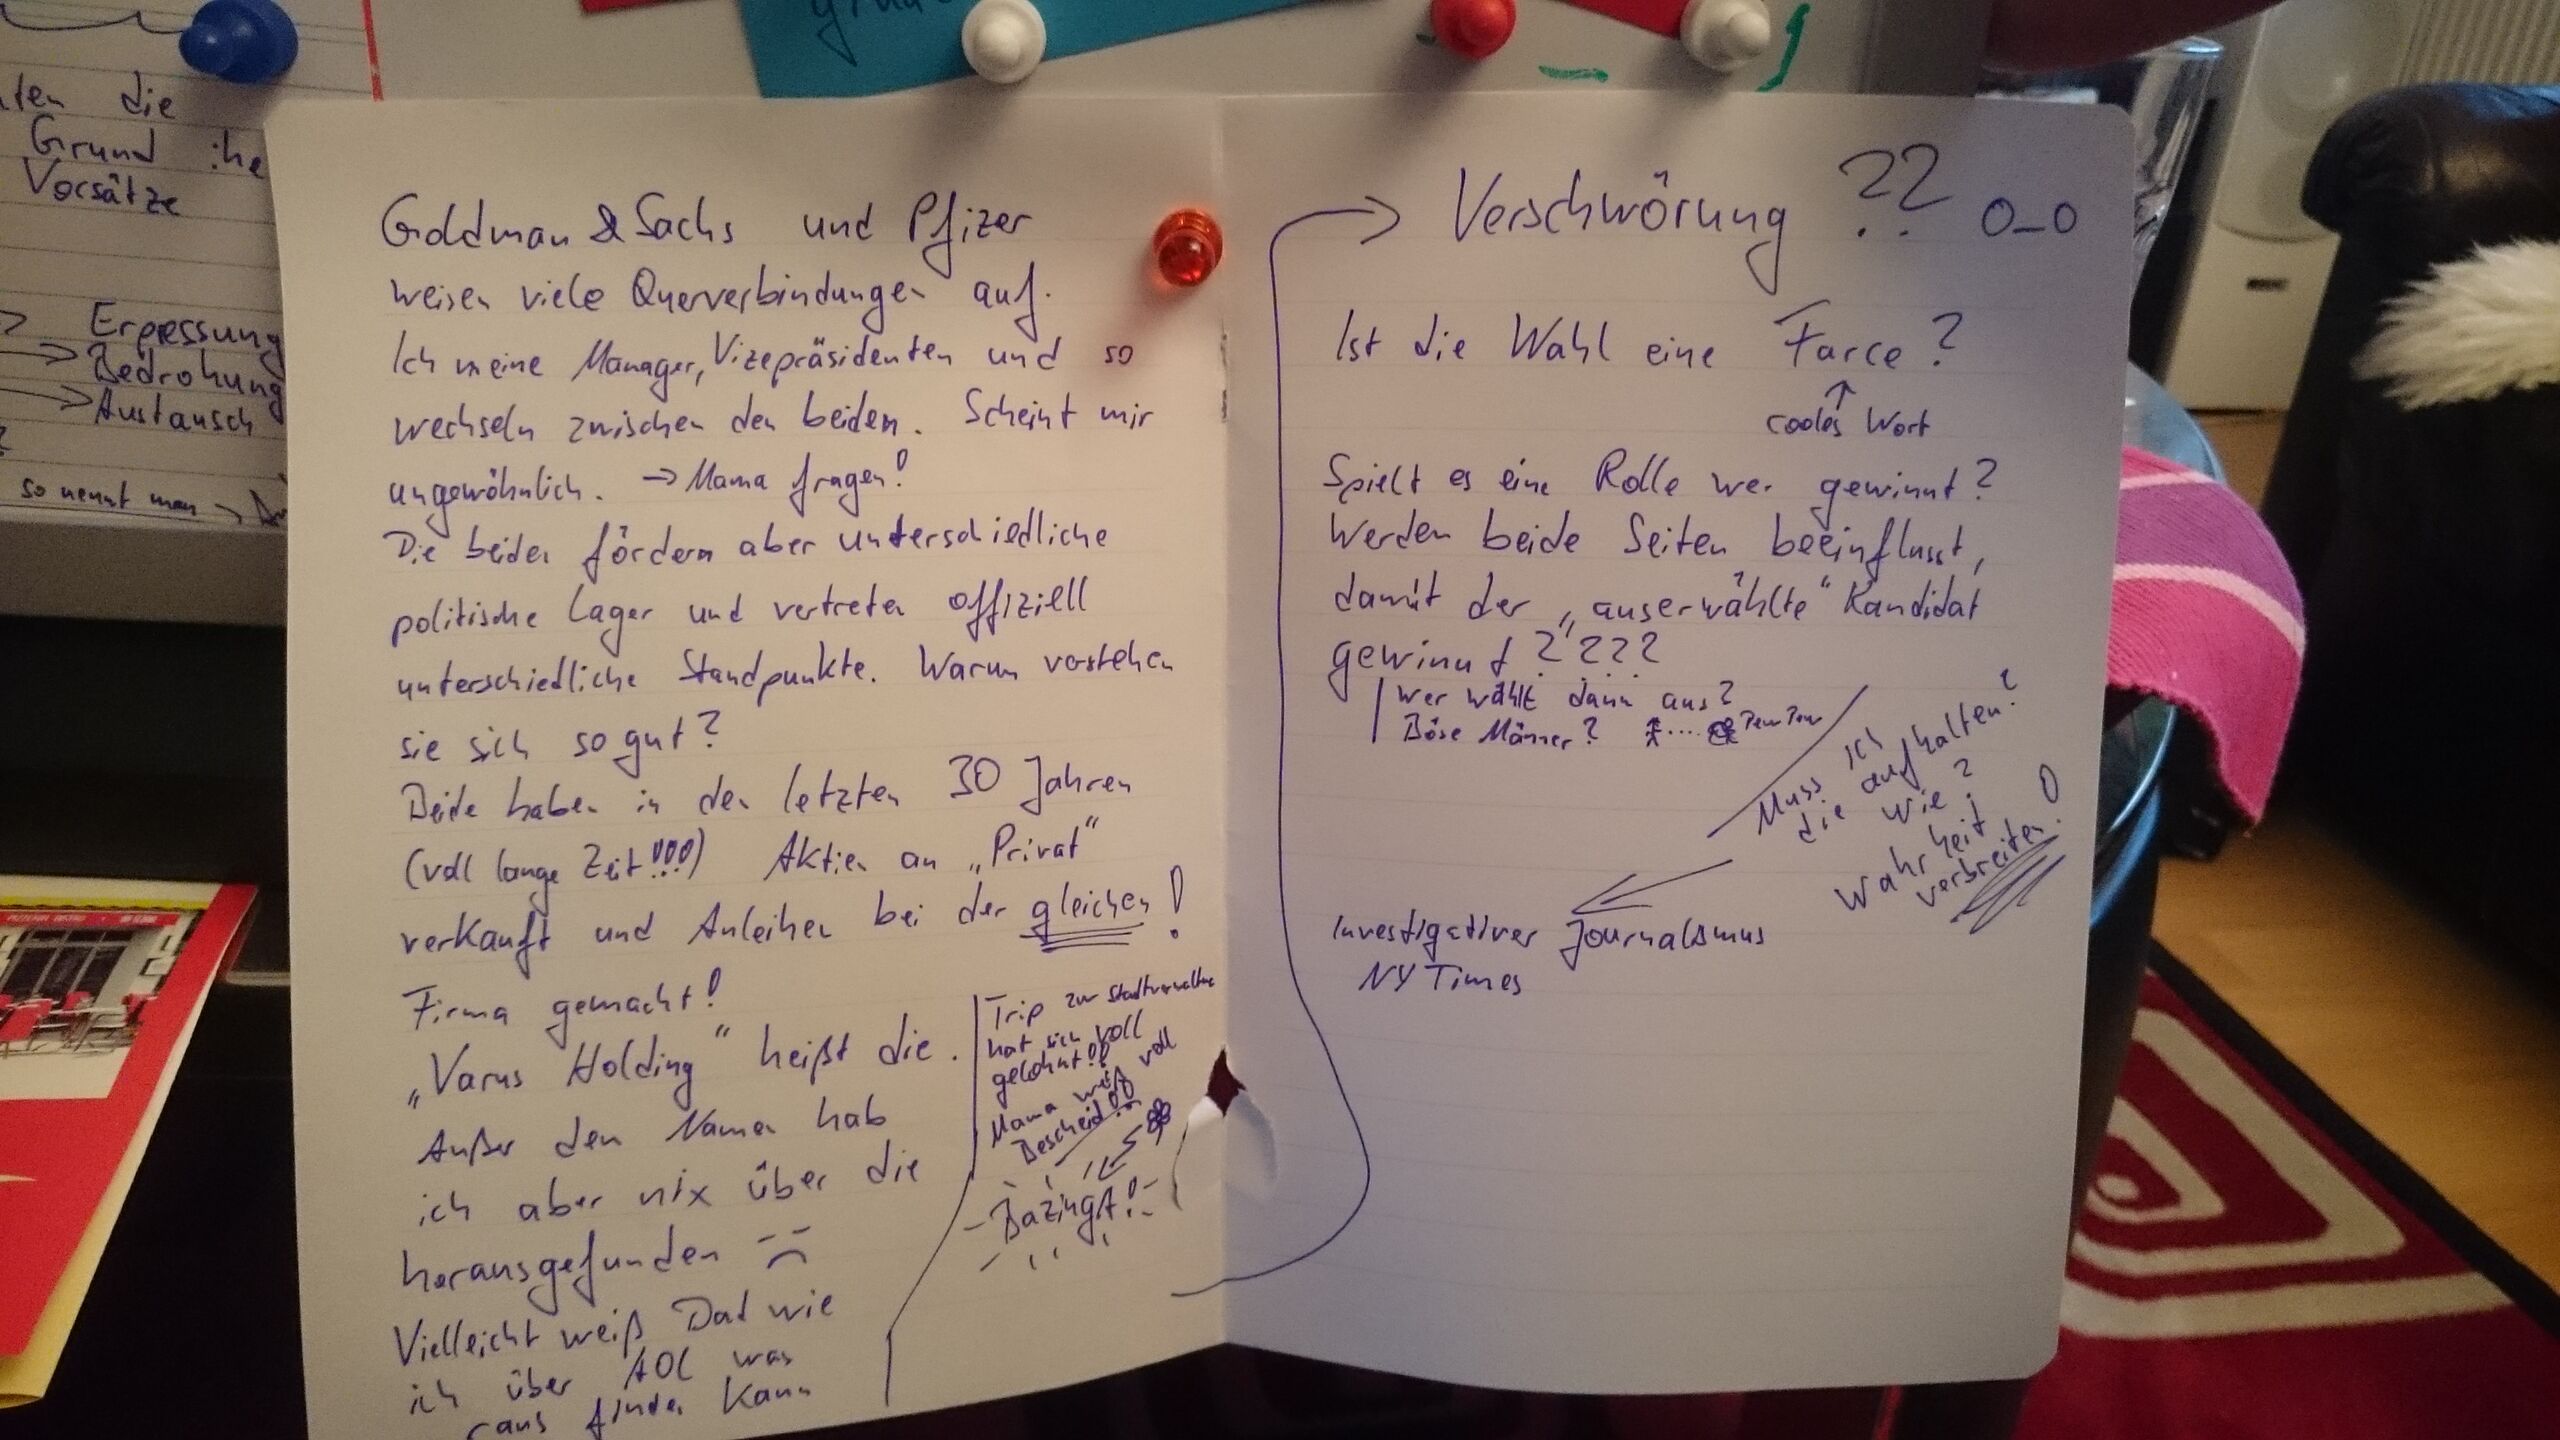 ten die
Grund
Vorsätze
Erpressung
Bedrohung
Austausch
so nennt man
Goldman & Sachs und Pfizer
weisen viele Querverbindungen auf.
Ich meine Manager, Vizepräsidenten und so
wechseln zwischen den beiden. Scheint mir
ungewöhnlich. → Mama fragen!
Die beiden fördern aber unterschiedliche
politische Lager und vertreten offiziell
unterschiedliche Standpunkte. Warum verstehen
sie sich so gut?
Beide haben in den letzten 30 Jahren
(voll lange Zeit!!!) Aktien an „Privat“
verkauft und Anleihen bei der gleichen!
Firma gemacht!
„Varus Holding“ heißt die.
Außer den Namen hab
ich aber nix über die
herausgefunden
Vielleicht weiß Dad wie
ich über AOL was
raus finden kann
Trip zur Stadtverwaltung
hat sich voll
gelohnt!!
Mama weiß voll
Bescheid!!
Bazinga!
Verschwörung ?? O_O
Ist die Wahl eine Farce?
cooles Wort
Spielt es eine Rolle wer gewinnt?
Werden beide Seiten beeinflusst,
damit der „auserwählte“ Kandidat
gewinnt ????
Wer wählt dann aus?
Böse Männer? Pew Pew
Muss ich
die aufhalten?
Wie?
Wahrheit
verbreiten!
Investigativer Journalismus
NY Times